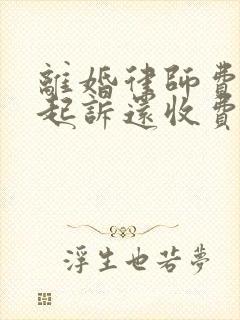 離婚律師費
起訴還收費
浮生也若夢